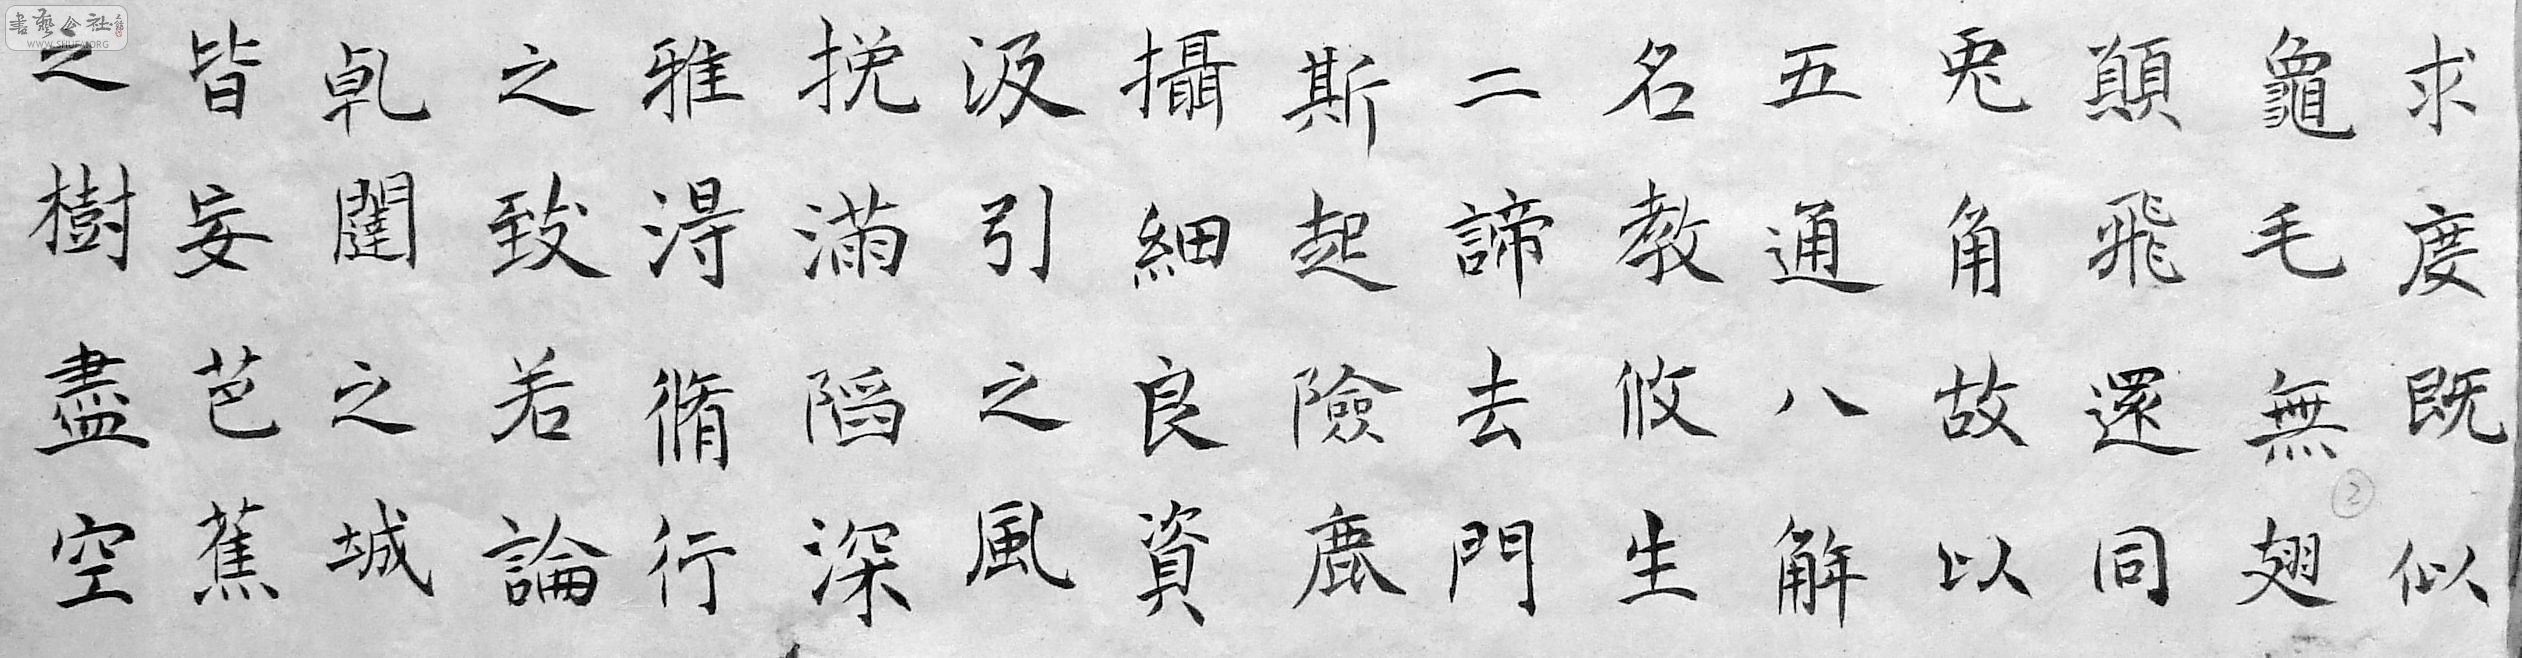 求度既似
龜毛無翅
顛飛還同
兎角故以
五通八解
名教攸生
二諦去門
斯起險鹿
攝細良資
汲引之風
挽滿陷深
雅得脩行
之致若論
乹闥之城
皆妄芭蕉
之樹盡空
書藝公社
WWW.SHUFA.ORG
2